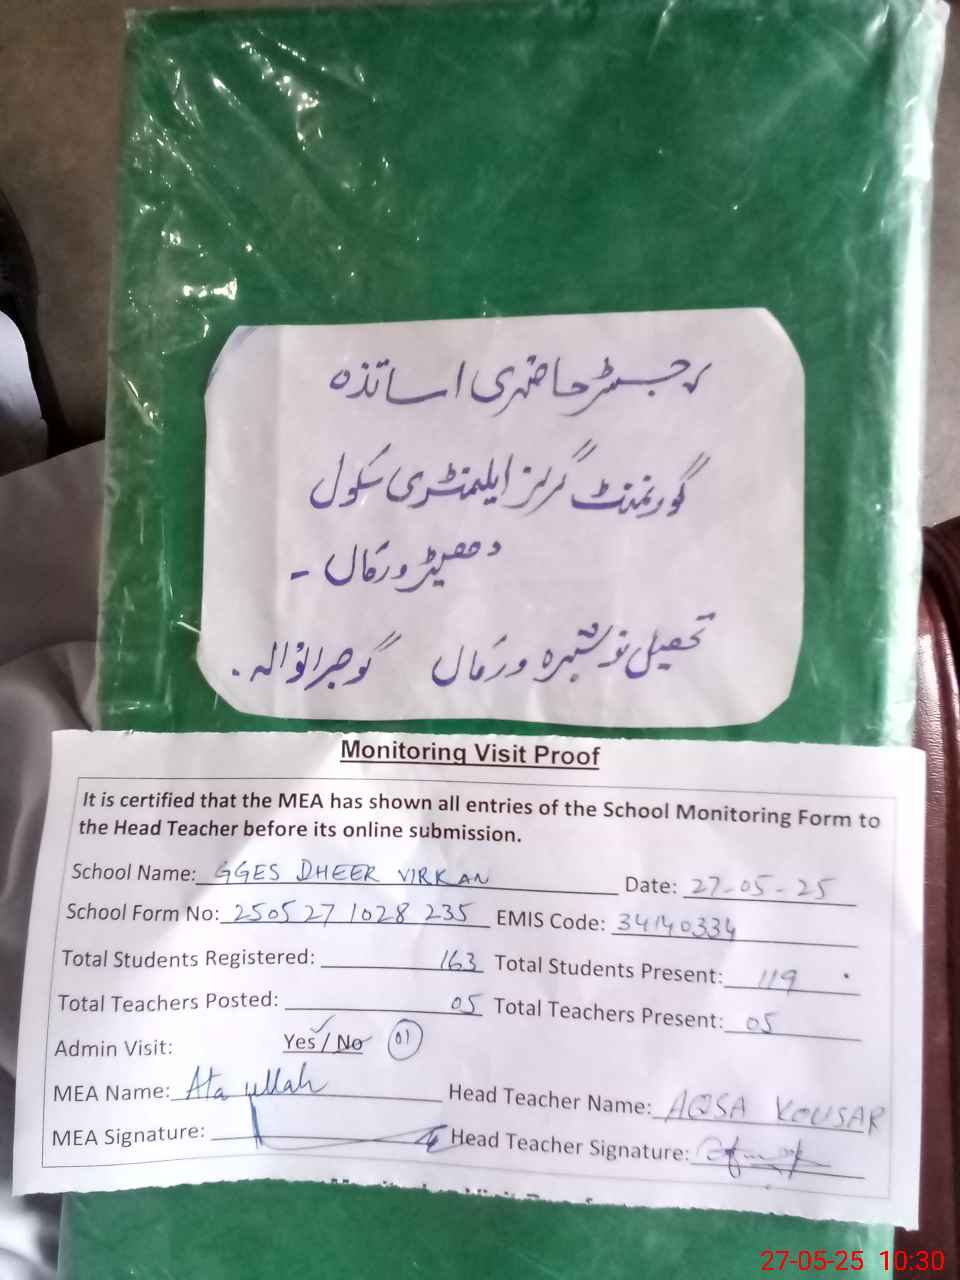 رجسٹر حاضری اساتذہ
گورنمنٹ گرلز ایلیمنٹری سکول
دھیڑ ورکاں -
تحصیل نوشہرہ ورکاں گوجرانوالہ.
Monitoring Visit Proof
It is certified that the MEA has shown all entries of the School Monitoring Form to
the Head Teacher before its online submission.
School Name: GGES DHEER VIRKAN Date: 27-05-25
School Form No: 2505271028235 EMIS Code: 34140334
Total Students Registered: 163 Total Students Present: 119
Total Teachers Posted: 05 Total Teachers Present: 05
Admin Visit: Yes / No 01
MEA Name: Ata ullah Head Teacher Name: AQSA KOUSAR
MEA Signature: Head Teacher Signature:
27-05-25 10:30